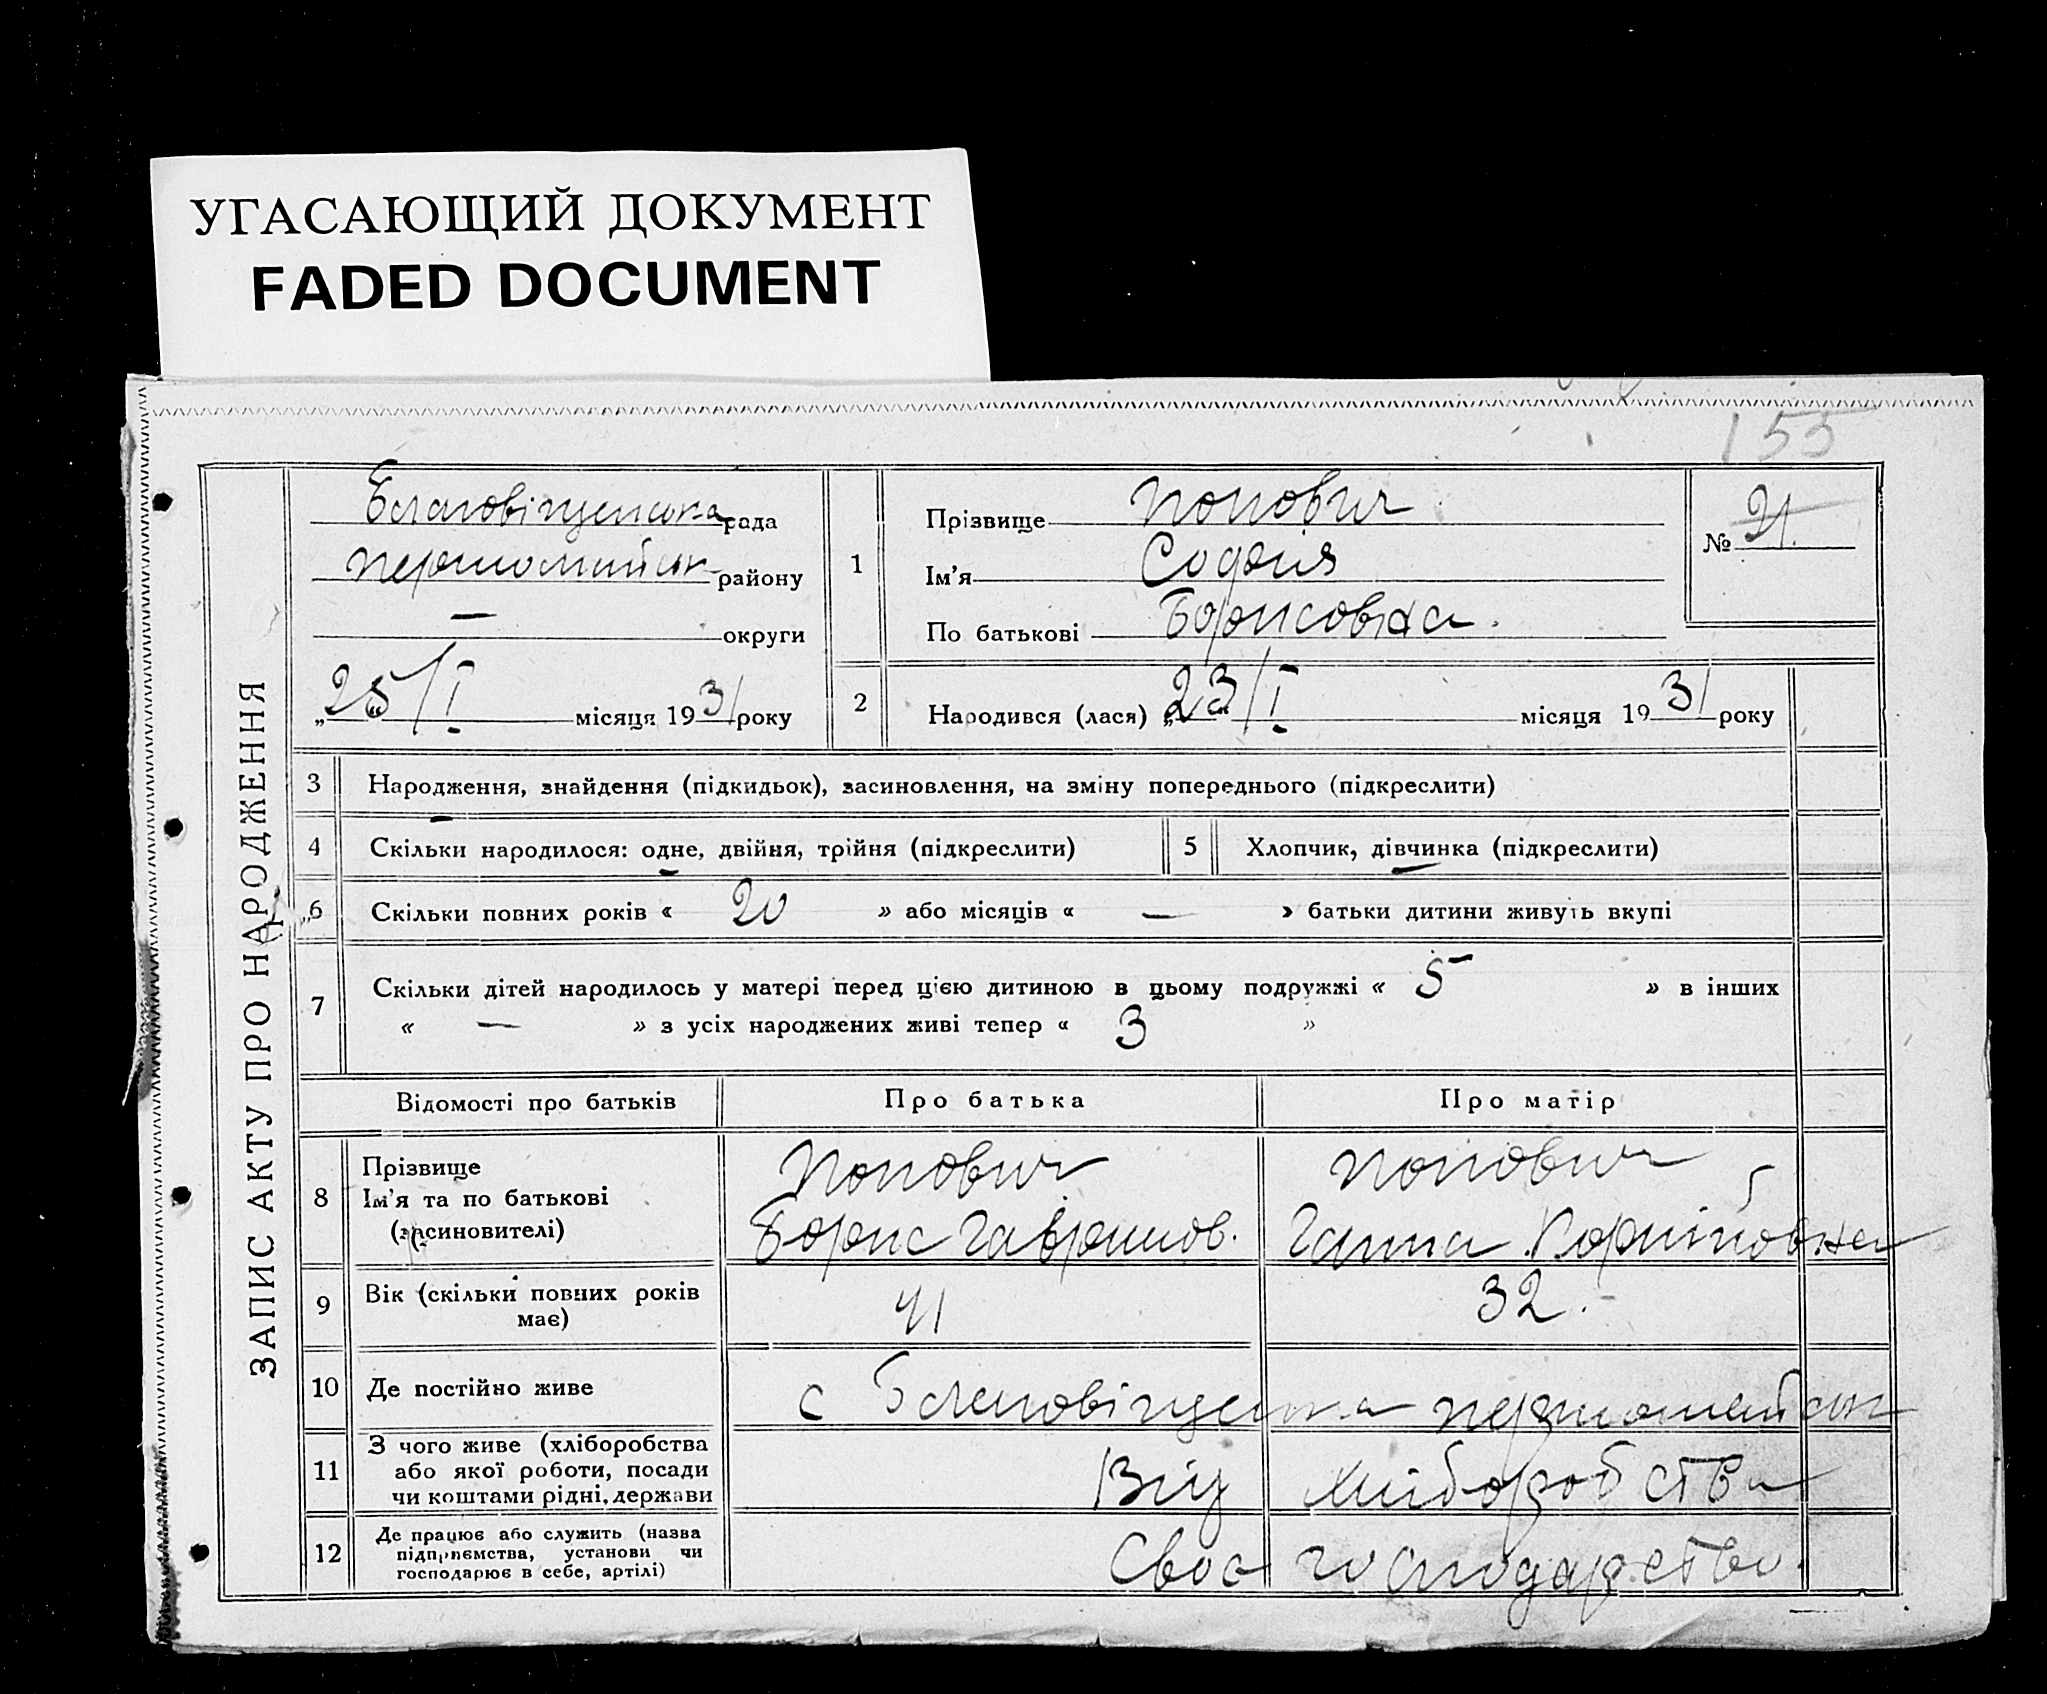 УГАСАЮЩИЙ ДОКУМЕНТ
FADED DOCUMENT
155
ЗАПИС АКТУ ПРО НАРОДЖЕННЯ
Благовіщенська рада
Первомайськ району
— округи
„25/I місяця 1931 року
1
Прізвище Попович
Ім'я Софія
По батькові Борисовна.
№ 21.
2
Народився (лася) „23/I місяця 1931 року
3 Народження, знайдення (підкидьок), засиновлення, на зміну попереднього (підкреслити)
4 Скільки народилося: одне, двійня, трійня (підкреслити)
5 Хлопчик, дівчинка (підкреслити)
6 Скільки повних років « 20 » або місяців « — » батьки дитини живуть вкупі
7 Скільки дітей народилось у матері перед цією дитиною в цьому подружжі « 5 » в інших
« — » з усіх народжених живі тепер « 3 »
Відомості про батьків Про батька Про матір
8 Прізвище
Ім'я та по батькові
(засиновителі)
Попович
Борис Гаврилов.
Попович
Ганна Корніївна
9 Вік (скільки повних років
має)
41 32.
10 Де постійно живе
с Благовіщенка Первомайськ
11 З чого живе (хліборобства
або якої роботи, посади
чи коштами рідні, держави
Від хліборобства
12 Де працює або служить (назва
підприємства, установи чи
господарює в себе, артілі)
Своє господарство.